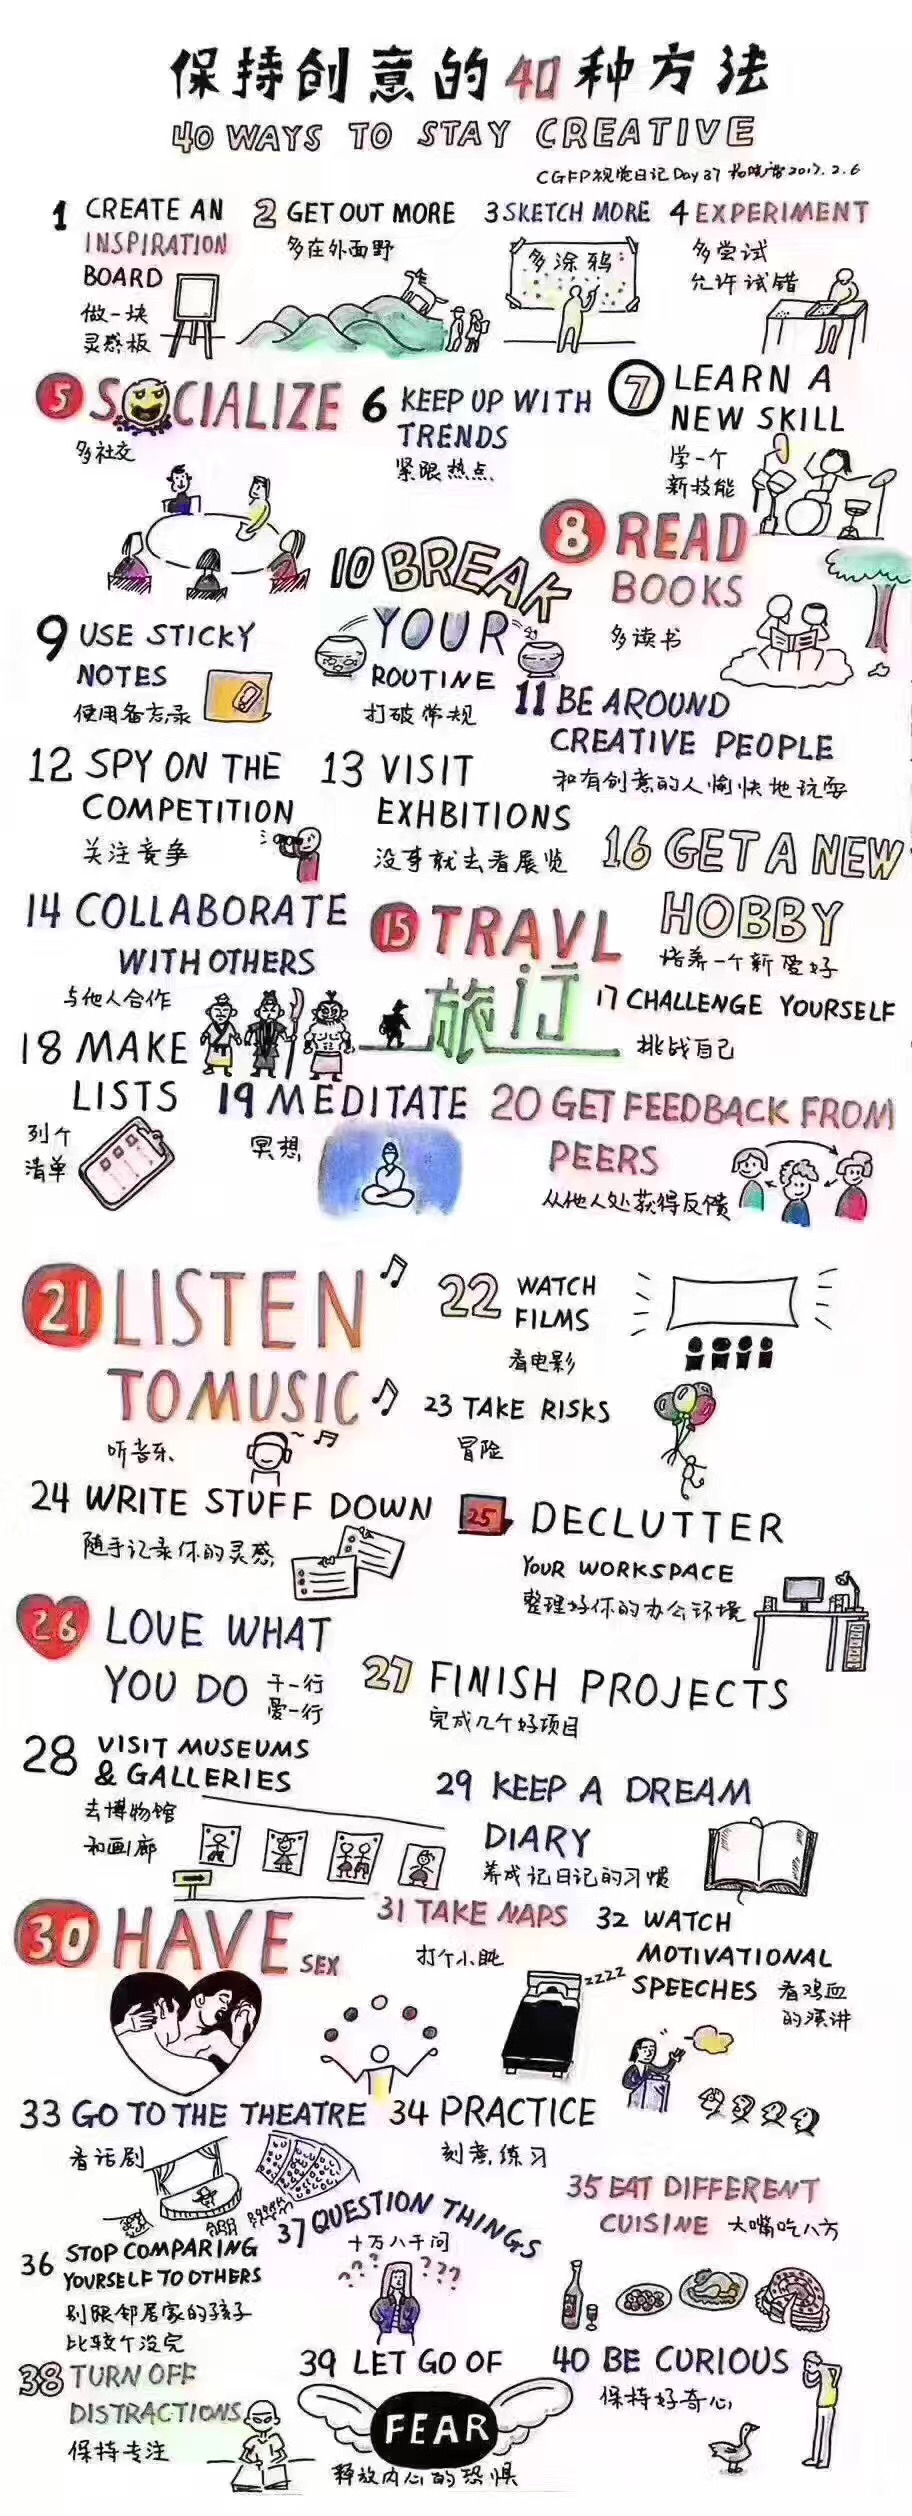 保持创意的40种方法
40 WAYS TO STAY CREATIVE
CGFP视觉日记Day37 2017.2.6
1 CREATE AN
INSPIRATION
BOARD
做一块
灵感板
2 GET OUT MORE
多在外面野
3 SKETCH MORE
多涂鸦
4 EXPERIMENT
多尝试
允许试错
5 SOCIALIZE
多社交
6 KEEP UP WITH
TRENDS
紧跟热点
7 LEARN A
NEW SKILL
学一个
新技能
8 READ
BOOKS
多读书
9 USE STICKY
NOTES
使用备忘录
10 BREAK
YOUR
ROUTINE
打破常规
11 BE AROUND
CREATIVE PEOPLE
和有创意的人愉快地玩耍
12 SPY ON THE
COMPETITION
关注竞争
13 VISIT
EXHBITIONS
没事就去看展览
14 COLLABORATE
WITH OTHERS
与他人合作
15 TRAVL
旅行
16 GET A NEW
HOBBY
培养一个新爱好
17 CHALLENGE YOURSELF
挑战自己
18 MAKE
LISTS
列个
清单
19 MEDITATE
冥想
20 GET FEEDBACK FROM
PEERS
从他人处获得反馈
21 LISTEN
TO MUSIC
听音乐
22 WATCH
FILMS
看电影
23 TAKE RISKS
冒险
24 WRITE STUFF DOWN
随手记录你的灵感
25 DECLUTTER
YOUR WORKSPACE
整理好你的办公环境
26 LOVE WHAT
YOU DO
干一行
爱一行
27 FINISH PROJECTS
完成几个好项目
28 VISIT MUSEUMS
& GALLERIES
去博物馆
和画廊
29 KEEP A DREAM
DIARY
养成记日记的习惯
30 HAVE SEX
31 TAKE NAPS
打个小盹
zzzz
32 WATCH
MOTIVATIONAL
SPEECHES
看鸡血
的演讲
33 GO TO THE THEATRE
看话剧
34 PRACTICE
刻意练习
35 EAT DIFFERENT
CUISINE 大嘴吃八方
36 STOP COMPARING
YOURSELF TO OTHERS
别跟邻居家的孩子
比较个没完
37 QUESTION THINGS
十万八千问
??? ???
38 TURN OFF
DISTRACTIONS
保持专注
39 LET GO OF
FEAR
释放内心的恐惧
40 BE CURIOUS
保持好奇心